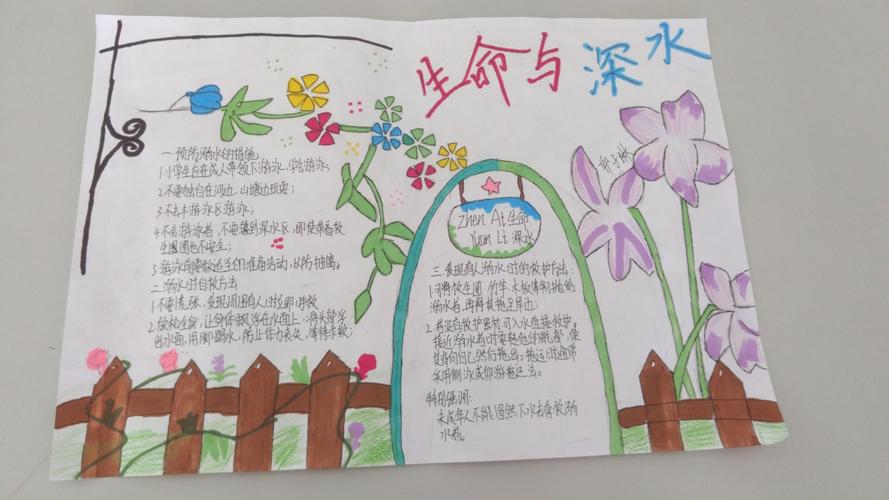 生命与深水
一、预防溺水的措施
1.小学生应在成人带领下游泳,学会游泳;
2.不要独自在河边、山塘边玩耍;
3.不去非游泳区游泳;
4.不会游泳者,不要游到深水区,即使带着救
生圈也不安全;
5.游泳前要做适当的准备活动,以防抽筋。
二、溺水时自救方法
1.不要慌张,发现周围有人时立即呼救
2.放松全身,让身体飘浮在水面上,将头部浮
出水面,用脚踢水,防止体力丧失,等待求救;
Zhen Ai 生命
Yuan Li 深水
三、发现有人溺水时的救护方法:
1.可将救生圈、竹竿、木板等物抛给
溺水者,再将其拖至岸边;
2.若没有救护器材,可入水直接救护。
接近溺水者时要转动他的髋部,使
其背向自己然后拖出。拖运时通常
采用侧泳或仰泳拖运法。
特别强调:
未成年人不能冒然下水去营救溺
水者